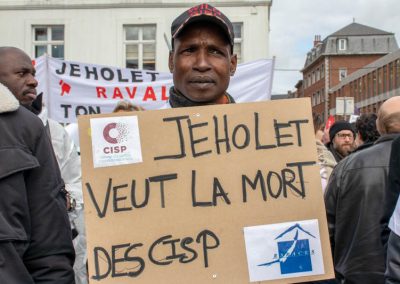 JEHOLET
RAVAL
TON
CISP
JEHOLET
VEUT LA MORT
DES CISP